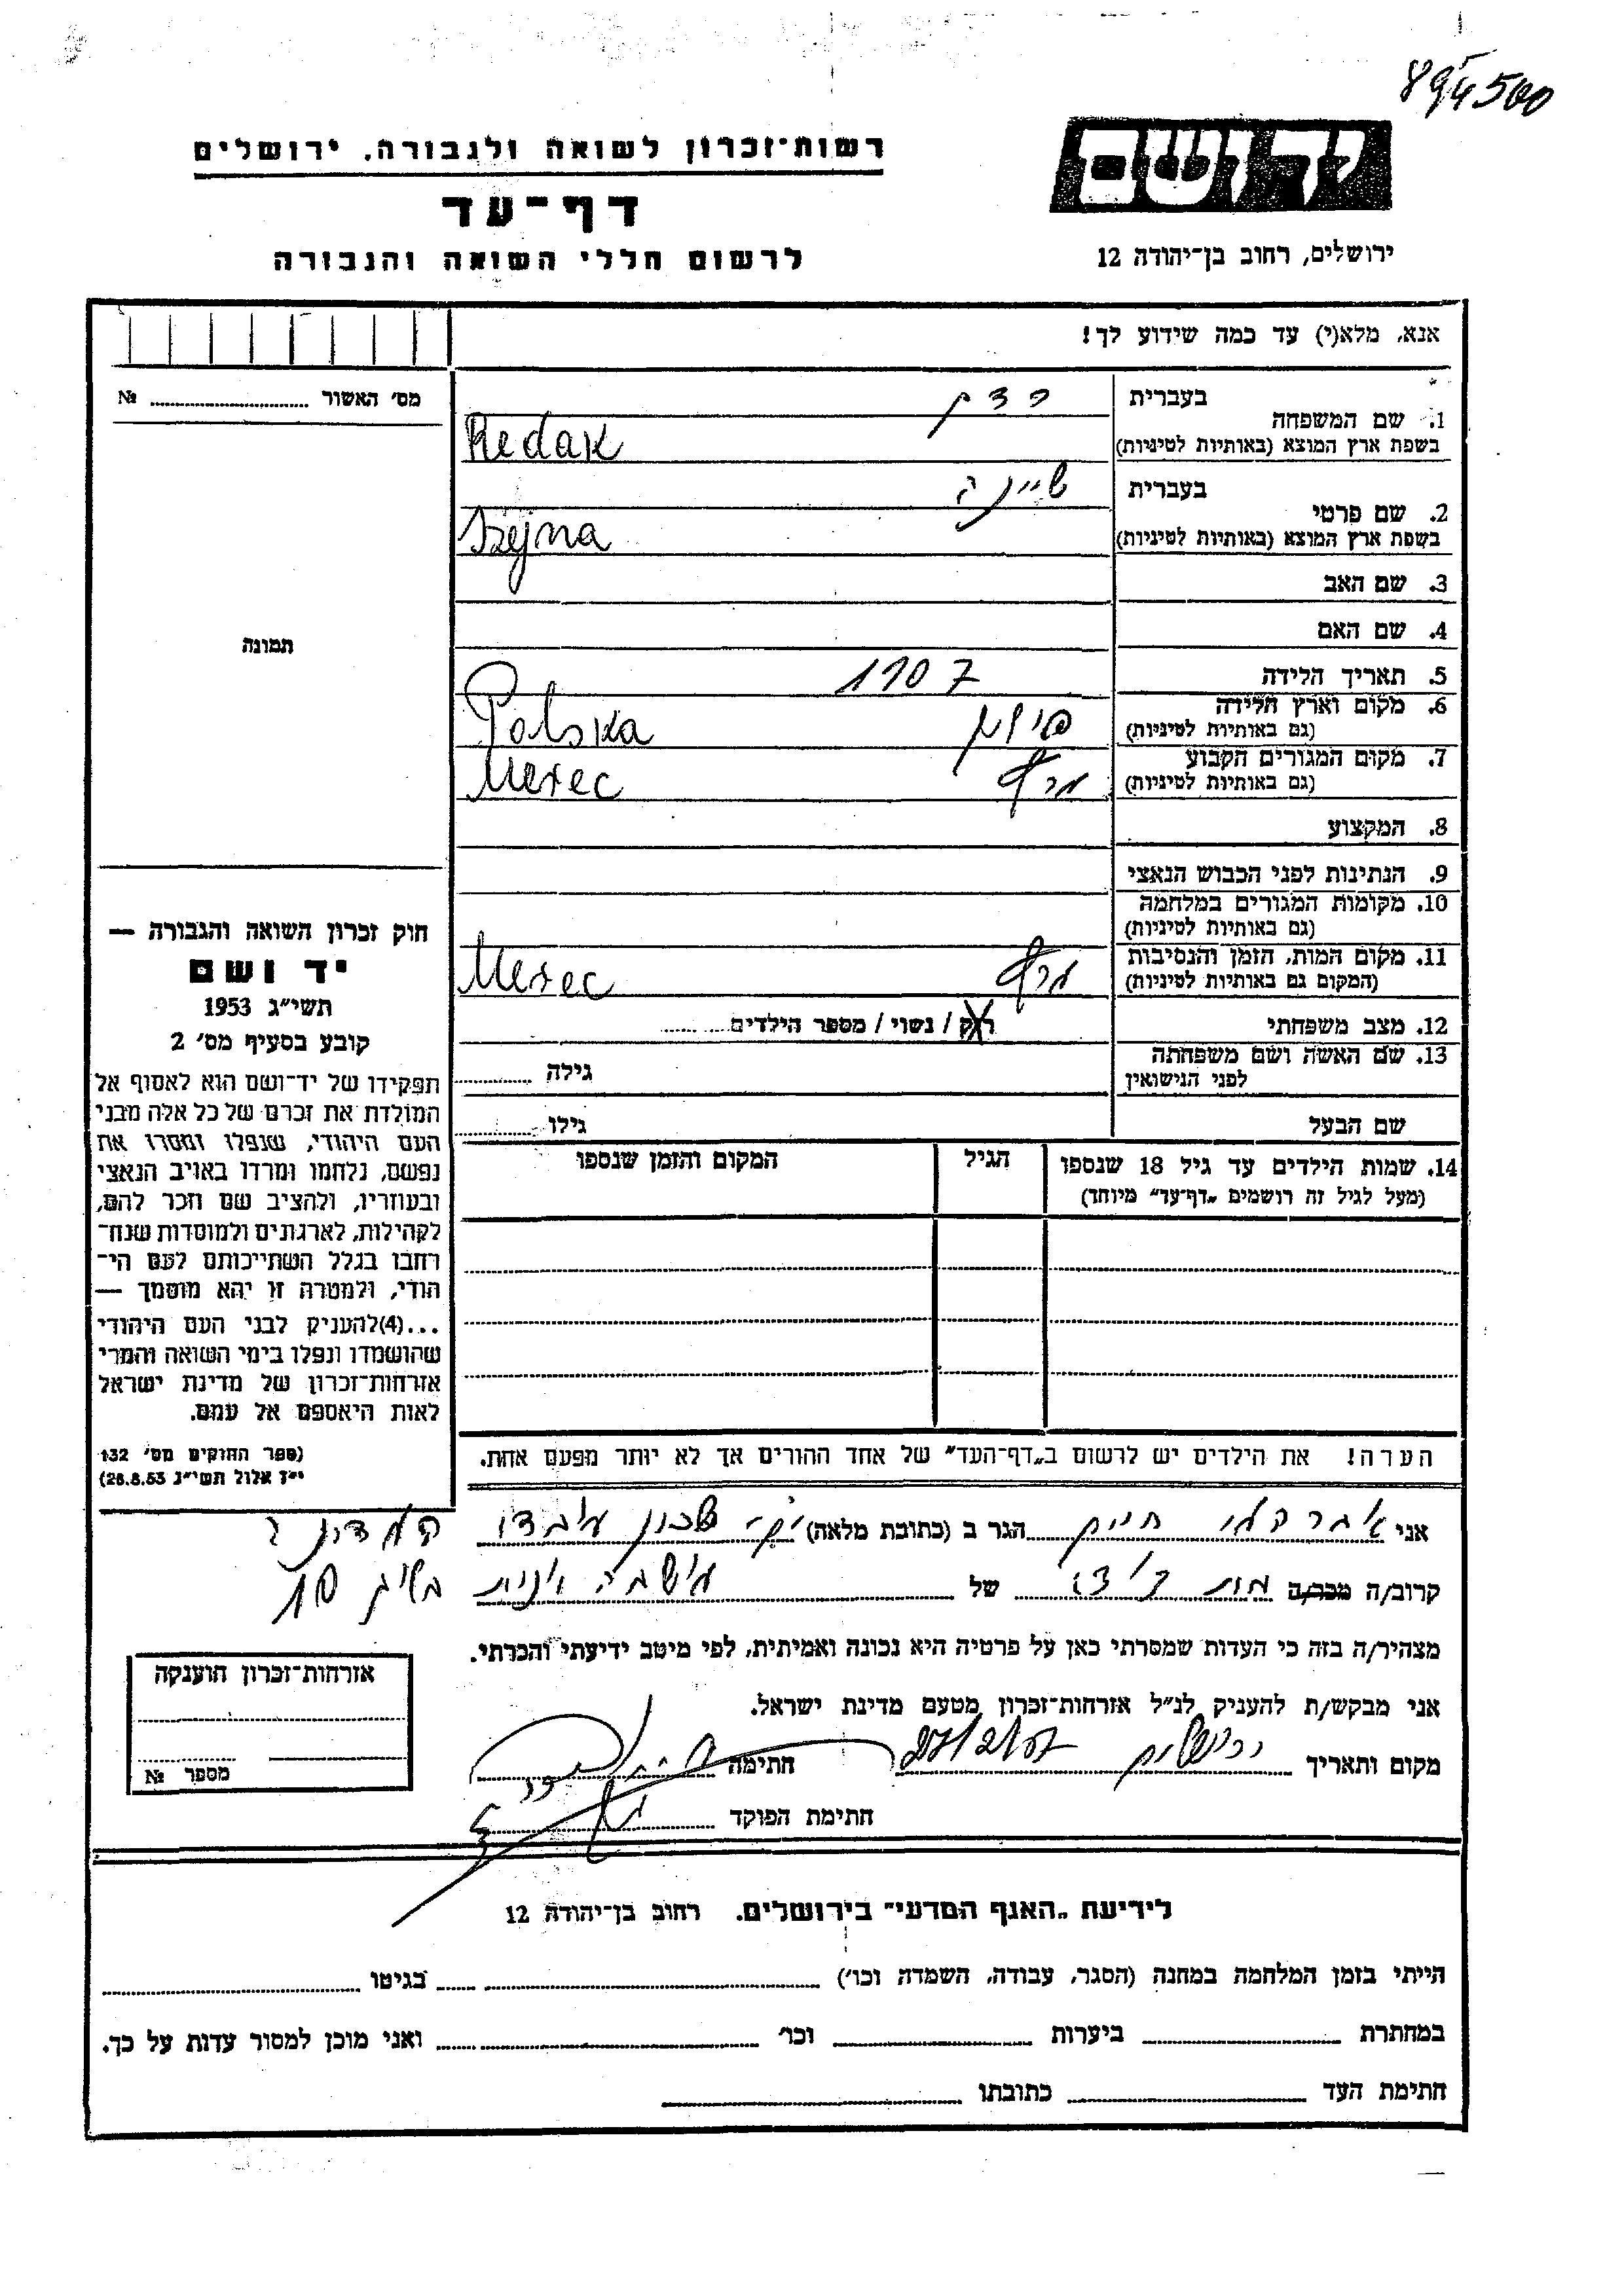 894500
רשות־זכרון לשואה ולגבורה. ירושלים
דף־עד
לרשום חללי השואה והגבורה
יד ושם
ירושלים, רחוב בן־יהודה 12
אנא, מלא(י) עד כמה שידוע לך!
מס' האשור № 
1. שם המשפחה
בעברית רדק
בשפת ארץ המוצא (באותיות לטיניות) Redak
2. שם פרטי
בעברית שיינה
בשפת ארץ המוצא (באותיות לטיניות) Szejna
3. שם האב
4. שם האם
5. תאריך הלידה 1907
6. מקום וארץ הלידה
(גם באותיות לטיניות) פולין Polska
7. מקום המגורים הקבוע
(גם באותיות לטיניות) מרץ Merec
8. המקצוע
9. הנתינות לפני הכבוש הנאצי
10. מקומות המגורים במלחמה
(גם באותיות לטיניות)
11. מקום המות, הזמן והנסיבות
(המקום גם באותיות לטיניות) מרץ Merec
12. מצב משפחתי רוק / נשוי / מספר הילדים
13. שם האשה ושם משפחתה
לפני הנישואין גילה
שם הבעל גילו
14. שמות הילדים עד גיל 18 שנספו
(מעל לגיל זה רושמים „דף־עד" מיוחד)
הגיל
המקום והזמן שנספו
תמונה
חוק זכרון השואה והגבורה —
יד ושם
תשי״ג 1953
קובע בסעיף מס' 2
תפקידו של יד־ושם הוא לאסוף אל
המולדת את זכרם של כל אלה מבני
העם היהודי, שנפלו ומסרו את
נפשם, נלחמו ומרדו באויב הנאצי
ובעוזריו, ולהציב שם וזכר להם,
לקהילות, לארגונים ולמוסדות שנח־
רחבו בגלל השתייכותם לעם הי־
הודי, ולמטרה זו יהא מוסמך —
...(4)להעניק לבני העם היהודי
שהושמדו ונפלו בימי השואה והמרי
אזרחות־זכרון של מדינת ישראל
לאות היאספם אל עמם.
(ספר החוקים מס' 132
י״ז אלול תשי״ג 28.8.53)
הערה! את הילדים יש לרשום ב„דף־העד" של אחד ההורים אך לא יותר מפעם אחת.
אני חייק הגר ב (כתובת מלאה) שכון
קרוב/ה מכר/ה של 10
מצהיר/ה בזה כי העדות שמסרתי כאן על פרטיה היא נכונה ואמיתית, לפי מיטב ידיעתי והכרתי.
אני מבקש/ת להעניק לנ״ל אזרחות־זכרון מטעם מדינת ישראל.
מקום ותאריך ירושלים חתימה
חתימת הפוקד
אזרחות־זכרון הוענקה
מספר №
לידיעת „האגף המדעי" בירושלים. רחוב בן־יהודה 12
הייתי בזמן המלחמה במחנה (הסגר, עבודה, השמדה וכו') בגיטו
במחתרת ביערות וכו' ואני מוכן למסור עדות על כך.
חתימת העד כתובתו